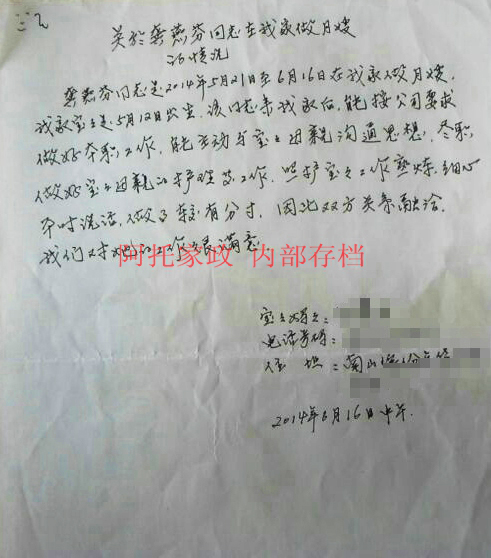 关於龚燕芬同志在我家做月嫂
的情况
龚燕芬同志是2014年5月21日至6月16日在我家做月嫂,
我家宝宝是5月12日出生。该同志来我家后,能按公司要求
做好本职工作,能主动与宝宝母亲沟通思想,尽职
做好宝宝母亲的护理等工作,照护宝宝工作熟炼、细心
平时说话、做事较有分寸,因此双方关系融洽,
我们对她的工作很满意。
阿托家政 内部存档
宝宝
电话号码:
住址:南山
2014年6月16日中午.